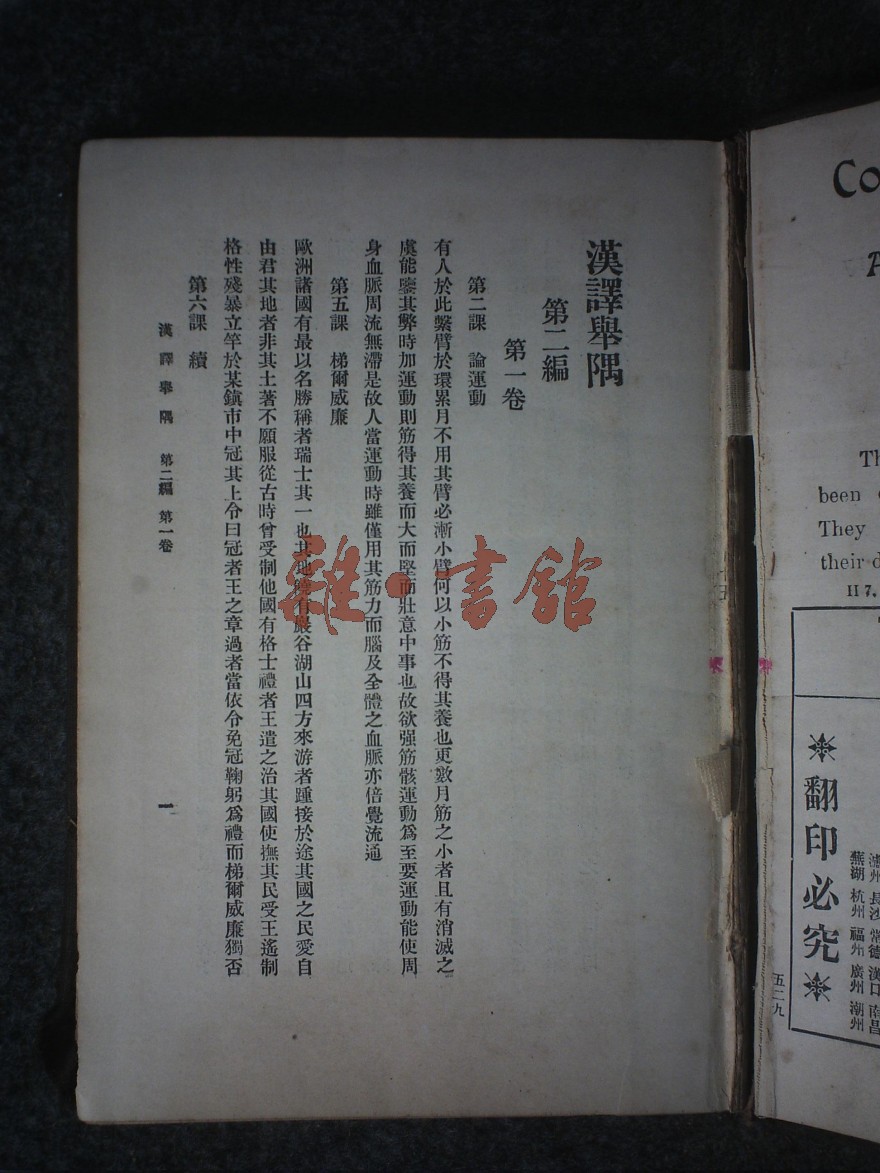 漢譯舉隅
第二編
第一卷
第二課 論運動
有人於此繫臂於環累月不用其臂必漸小臂何以小筋不得其養也更數月筋之小者且有消滅之
虞能鑒其弊時加運動則筋得其養而大而堅而壯意中事也故欲强筋骸運動爲至要運動能使周
身血脈周流無滯是故人當運動時雖僅用其筋力而腦及全體之血脈亦倍覺流通
第五課 梯爾威廉
歐洲諸國有最以名勝稱者瑞士其一也其地饒有巖谷湖山四方來游者踵接於途其國之民愛自
由君其地者非其土著不願服從古時曾受制他國有格士禮者王遣之治其國使撫其民受王遙制
格性殘暴立竿於某鎭市中冠其上令曰冠者王之章過者當依令免冠鞠躬爲禮而梯爾威廉獨否
第六課 續
漢譯舉隅 第二編 第一卷
一
雜·書館
Co
A
Th
been
They
their d
II 7.
翻印必究
長沙 常德 漢口 南昌
蕪湖 杭州 福州 廣州 潮州
五二九